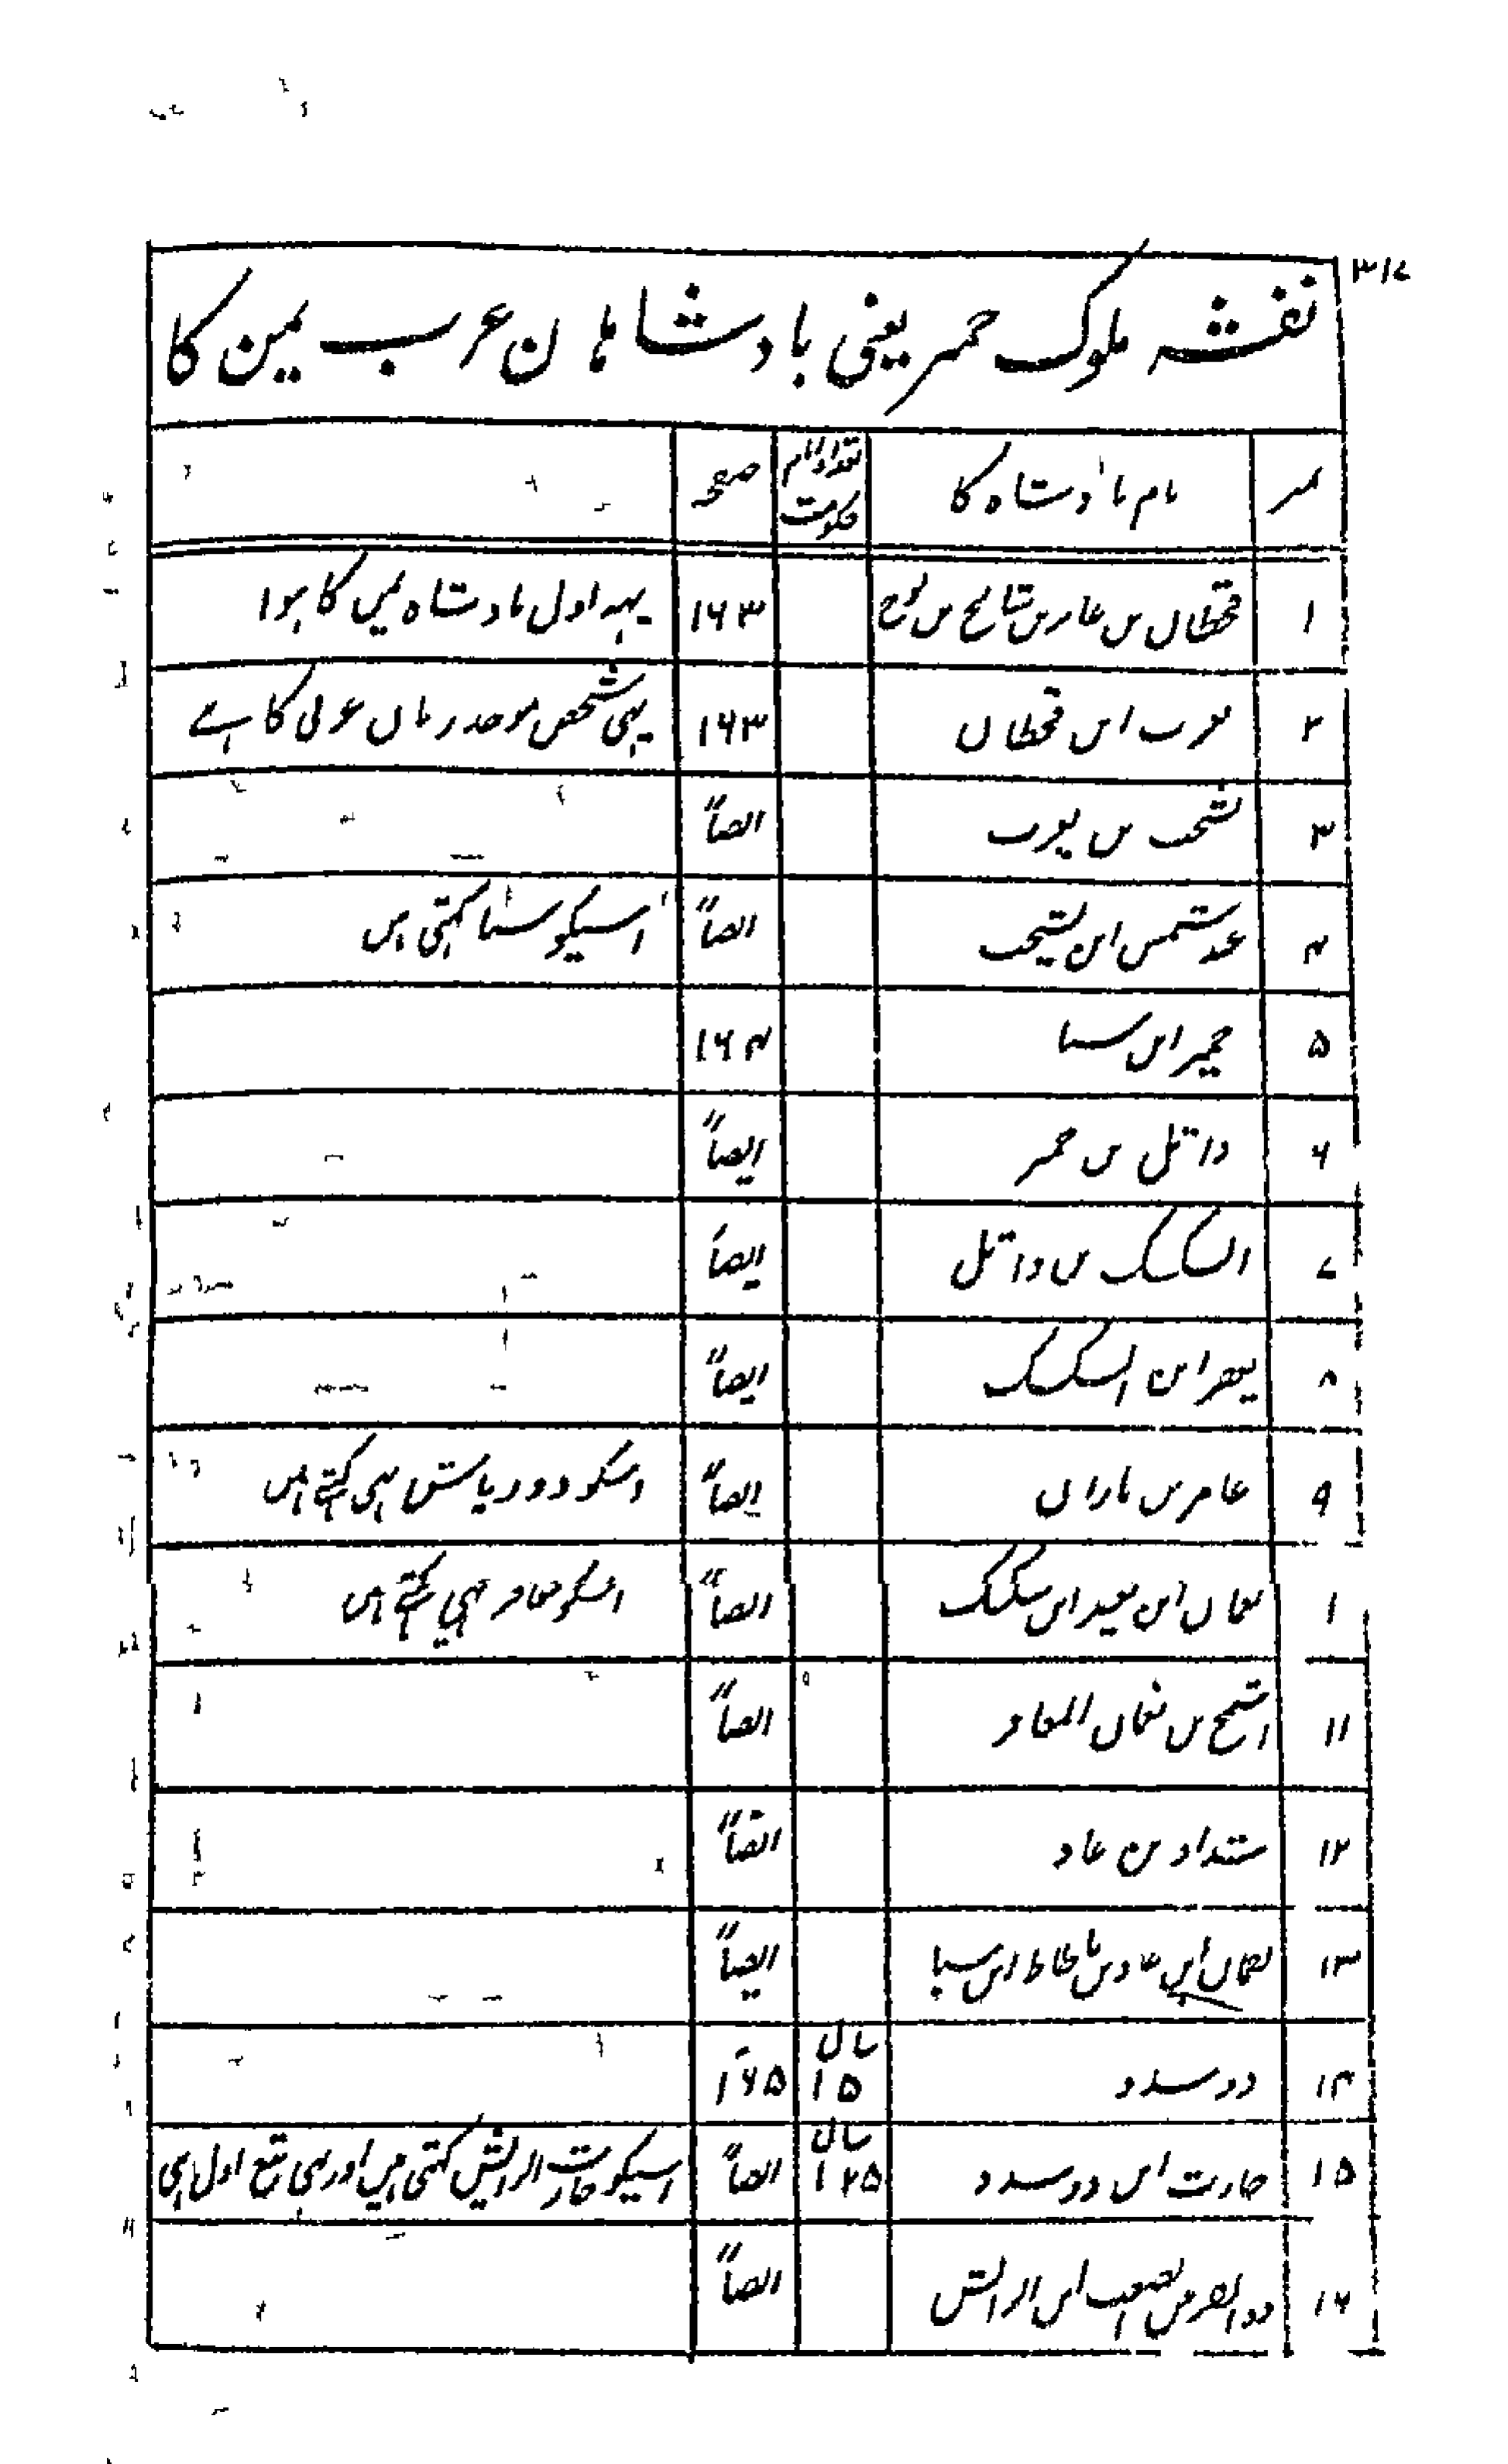 ۳۱۷
نقشہ ملوک حمیر یعنی بادشاہان عرب یمن کا
نمبر نام بادشاہ کا تعداد ایام حکومت صفحہ
۱ قحطان بن عابر بن شالخ بن نوح ۱۶۳ یہہ اول بادشاہ یمن کا ہوا
۲ یعرب ابن قحطان ۱۶۳ یہی شخص موجد زبان عربی کا ہے
۳ یشجب بن یعرب ایضاً
۴ عبد شمس ابن یشجب ایضاً اسیکو سبا کہتی ہیں
۵ حمیر ابن سبا ۱۶۴
۶ واثل بن حمیر ایضاً
۷ السکسک بن واثل ایضاً
۸ یعفر ابن السکسک ایضاً
۹ عامر بن باران ایضاً اسکو ذو ریاش بہی کہتے ہیں
۱ نعمان ابن یعفر ابن سکسک ایضاً اسکو معافر بہی کہتے ہیں
۱۱ اشمح بن نعمان المعافر ایضاً
۱۲ شداد بن عاد ایضاً
۱۳ لقمان ابن عاد بن ماطاط ابن سبا ایضاً
۱۴ ذو سدد سال ۱۵ ۱۶۵
۱۵ حارث ابن ذو سدد سال ۱۲۵ ایضاً اسیکو حارث الرائش کہتی ہیں اور یہی تبع اول ہی
۱۶ ذو القرنین الصعب ابن الرائش ایضاً